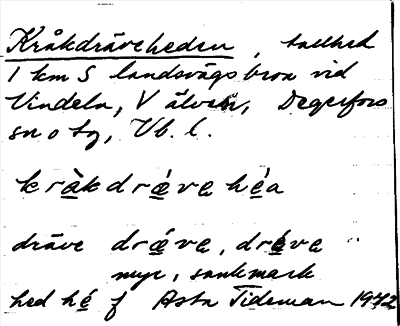 Kråkdräveheden, tallhed
1 km S landsvägsbron vid
Vindeln, V älven, Degerfors
sn o tg, Vb. l.
kràkdrǽve hé̱a
dräve drǽve, dréve
myr, sankmark
hed hé f Asta Tideman 1972